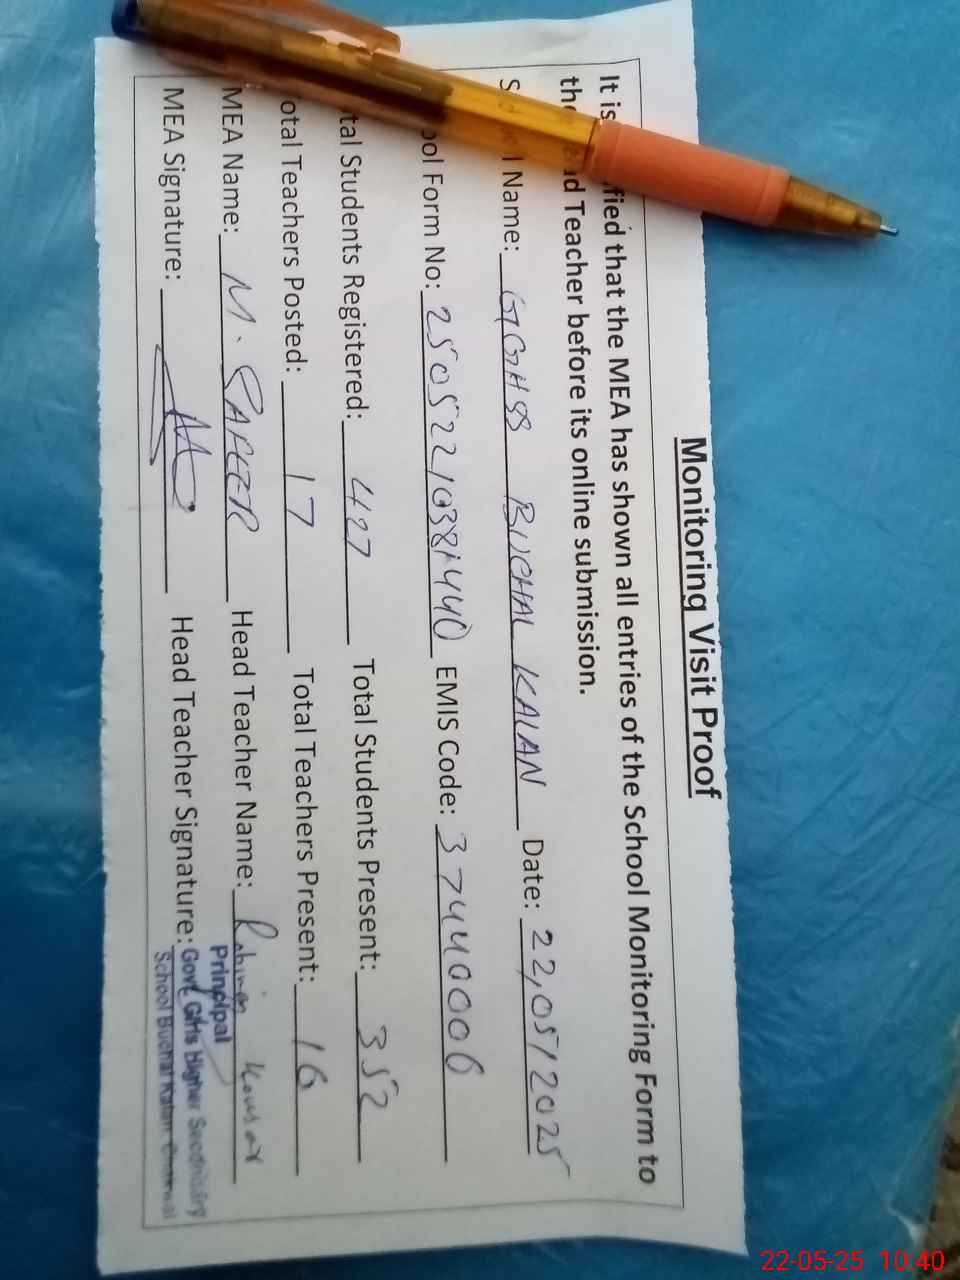 Monitoring Visit Proof
It is fied that the MEA has shown all entries of the School Monitoring Form to
the ad Teacher before its online submission.
Name: GGHSS BUCHAL KALAN Date: 22/05/2025
ool Form No: EMIS Code: 37440006
tal Students Registered: 427 Total Students Present: 352
otal Teachers Posted: 17 Total Teachers Present: 16
MEA Name: M. SAFEER Head Teacher Name: Kousar
MEA Signature: Head Teacher Signature:
Principal
Govt. Girls Higher Secondary
School Buchal Kalan Chakwal
22-05-25 10:40